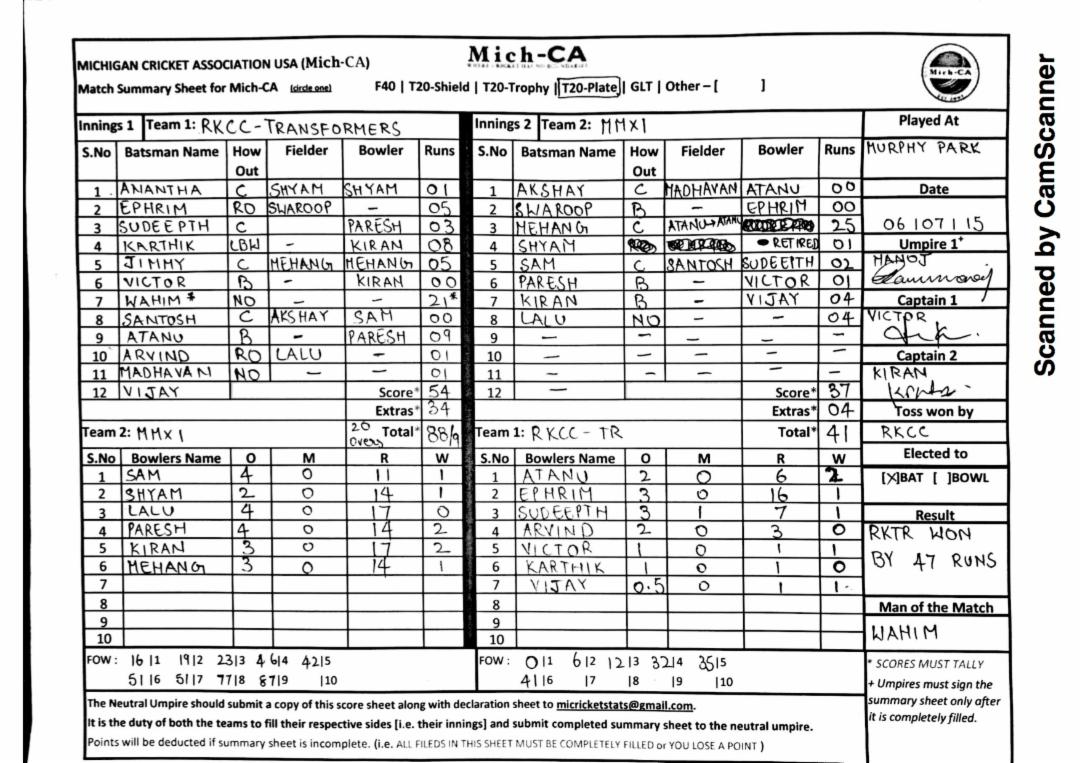 Mich-CA
MICHIGAN CRICKET ASSOCIATION USA (Mich-CA)
Match Summary Sheet for Mich-CA (circle one) F40 | T20-Shield | T20-Trophy | T20-Plate | GLT | Other – [ ]
Mich-CA
Innings 1 Team 1: RKCC-TRANSFORMERS
S.No Batsman Name How Out Fielder Bowler Runs
1 ANANTHA C SHYAM SHYAM 01
2 EPHRIM RO SWAROOP – 05
3 SUDEEPTH C PARESH 03
4 KARTHIK LBW – KIRAN 08
5 JIMMY C MEHANG MEHANG 05
6 VICTOR B – KIRAN 00
7 WAHIM * NO – – 21*
8 SANTOSH C AKSHAY SAM 00
9 ATANU B – PARESH 09
10 ARVIND RO LALU – 01
11 MADHAVAN NO – – 01
12 VIJAY Score* 54
Extras* 34
Team 2: MMX1 20 overs Total* 88/9
S.No Bowlers Name O M R W
1 SAM 4 0 11 1
2 SHYAM 2 0 14 1
3 LALU 4 0 17 0
4 PARESH 4 0 14 2
5 KIRAN 3 0 17 2
6 MEHANG 3 0 14 1
7
8
9
10
FOW: 16|1 19|2 23|3 46|4 42|5
51|6 51|7 77|8 87|9 |10
Innings 2 Team 2: MMX1
S.No Batsman Name How Out Fielder Bowler Runs
1 AKSHAY C MADHAVAN ATANU 00
2 SWAROOP B – EPHRIM 00
3 MEHANG C ATANU→ATANU 25
4 SHYAM RETIRED 01
5 SAM C SANTOSH SUDEEPTH 02
6 PARESH B VICTOR 01
7 KIRAN B – VIJAY 04
8 LALU NO – – 04
9 – – – – –
10 – – – – –
11 – – – – –
12 – Score* 37
Extras* 04
Team 1: RKCC-TR Total* 41
S.No Bowlers Name O M R W
1 ATANU 2 0 6 2
2 EPHRIM 3 0 16 1
3 SUDEEPTH 3 1 7 1
4 ARVIND 2 0 3 0
5 VICTOR 1 0 1 1
6 KARTHIK 1 0 1 0
7 VIJAY 0.5 0 1 1
8
9
10
FOW: 0|1 6|2 12|3 32|4 35|5
41|6 |7 |8 |9 |10
Played At
MURPHY PARK
Date
06/07/15
Umpire 1+
MANOJ
Captain 1
VICTOR
Captain 2
KIRAN
Toss won by
RKCC
Elected to
[X]BAT [ ]BOWL
Result
RKTR WON
BY 47 RUNS
Man of the Match
WAHIM
* SCORES MUST TALLY
+ Umpires must sign the
summary sheet only after
it is completely filled.
The Neutral Umpire should submit a copy of this score sheet along with declaration sheet to micricketstats@gmail.com.
It is the duty of both the teams to fill their respective sides [i.e. their innings] and submit completed summary sheet to the neutral umpire.
Points will be deducted if summary sheet is incomplete. (i.e. ALL FILEDS IN THIS SHEET MUST BE COMPLETELY FILLED or YOU LOSE A POINT )
Scanned by CamScanner